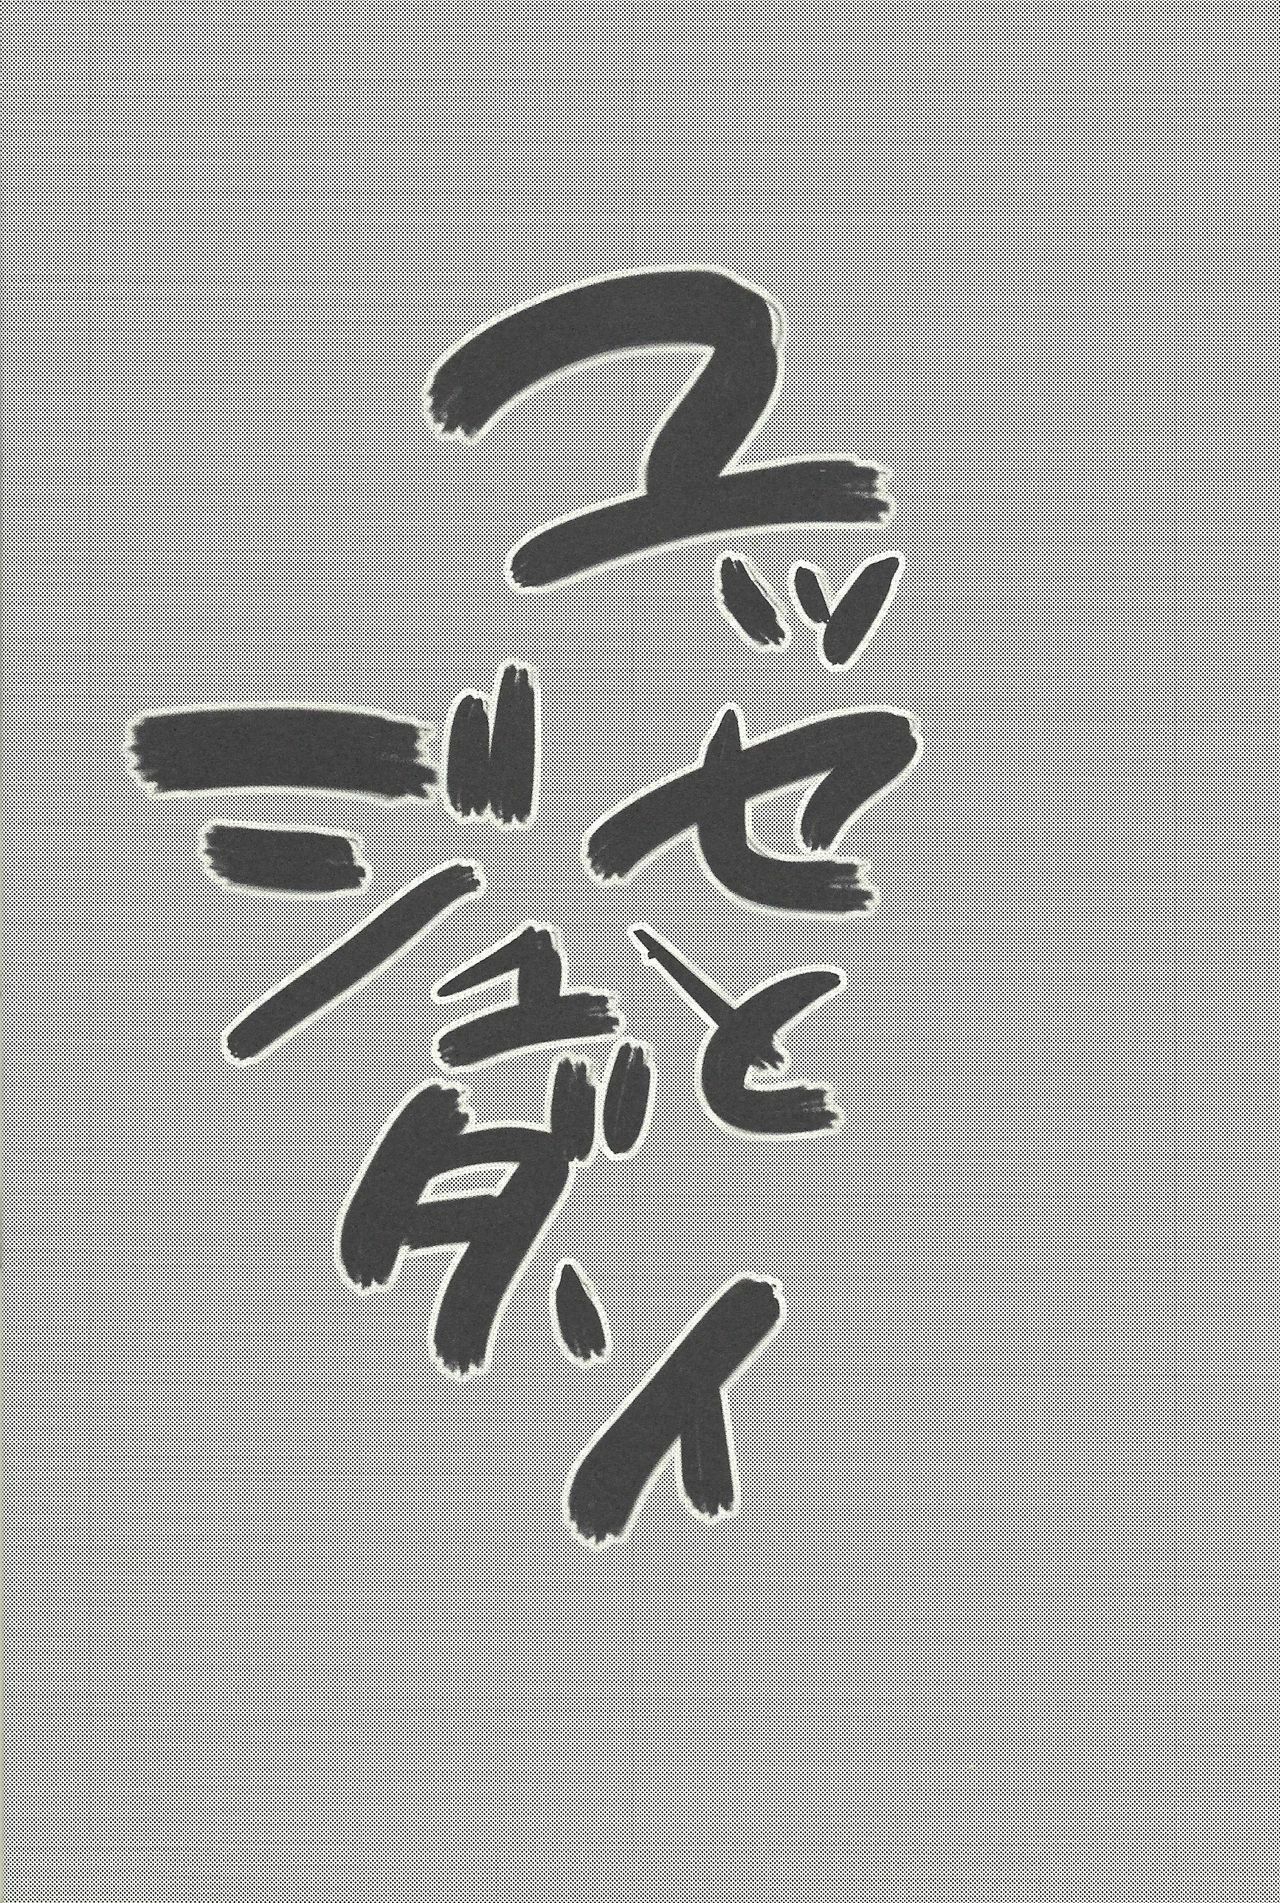 ユッセと
ジュダ、イ